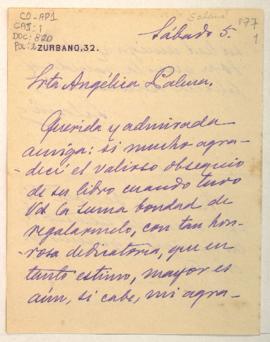 Sábado 5.
CO-AP1
CAJ: 1
DOC: 820
ZURBANO, 32.
Srta Angélica Palma.
Querida y admirada
amiga: si mucho agra-
decí el valioso obsequio
de su libro cuando tuvo
Vd la suma bondad de
regalarmelo, con tan hon-
rosa dedicatoria, que en
tanto estimo, mayor es
aún, si cabe, mi agra-